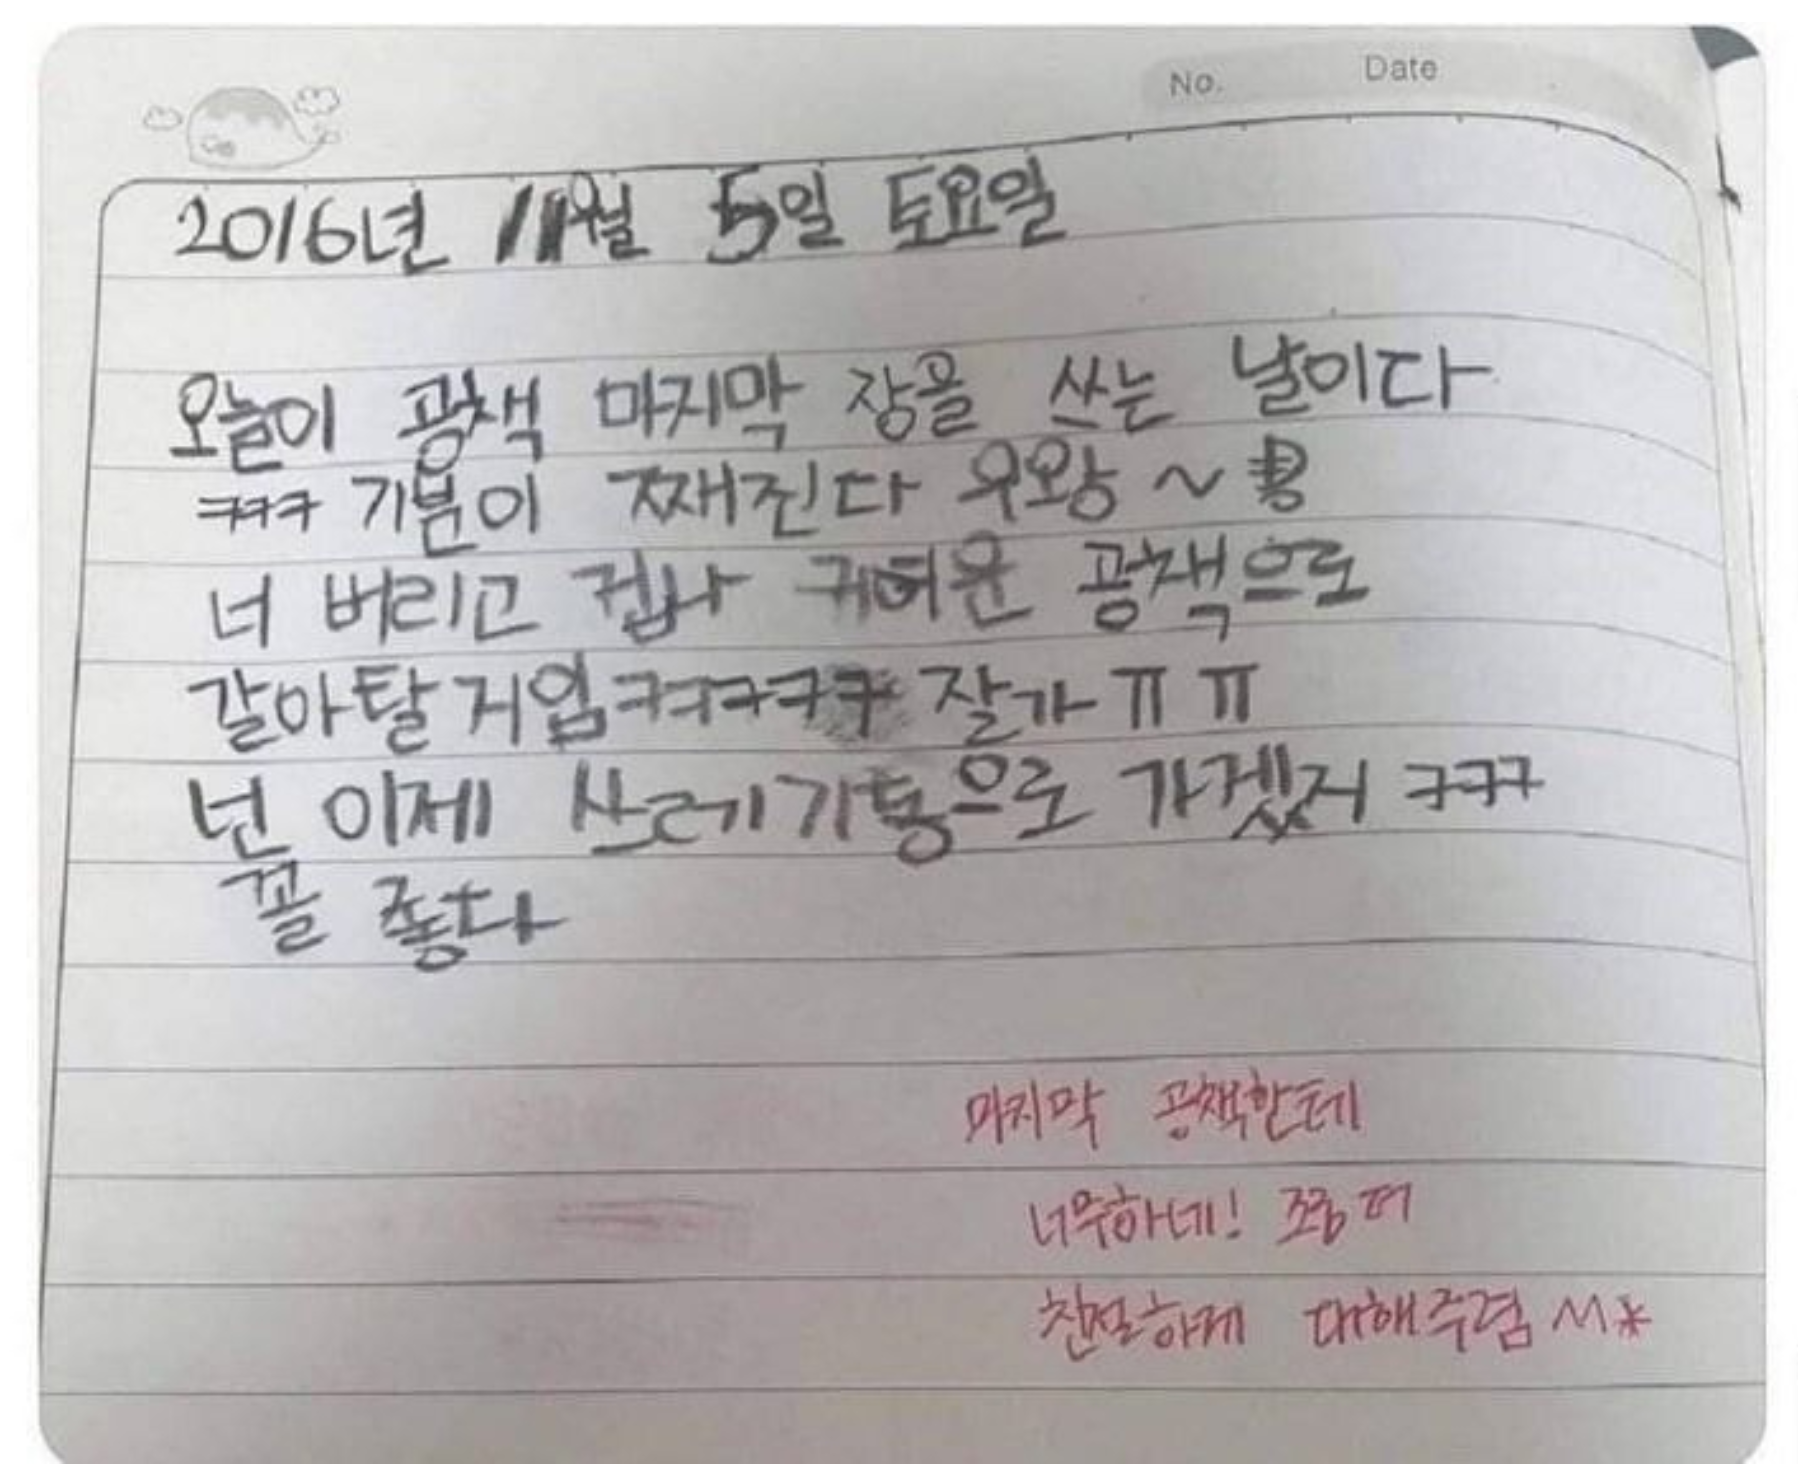 No. Date
2016년 11월 5일 토요일
오늘이 공책 마지막 장을 쓰는 날이다
ㅋㅋㅋ 기분이 째진다 우왕~ㅎ
너 버리고 겁나 귀여운 공책으로
갈아탈거임ㅋㅋㅋㅋㅋ 잘가ㅠㅠ
넌 이제 쓰레기통으로 가겟지 ㅋㅋㅋ
꼴 좋다
마지막 공책한테
너무하네! 조금 더
친절하게 대해주렴 ^^*